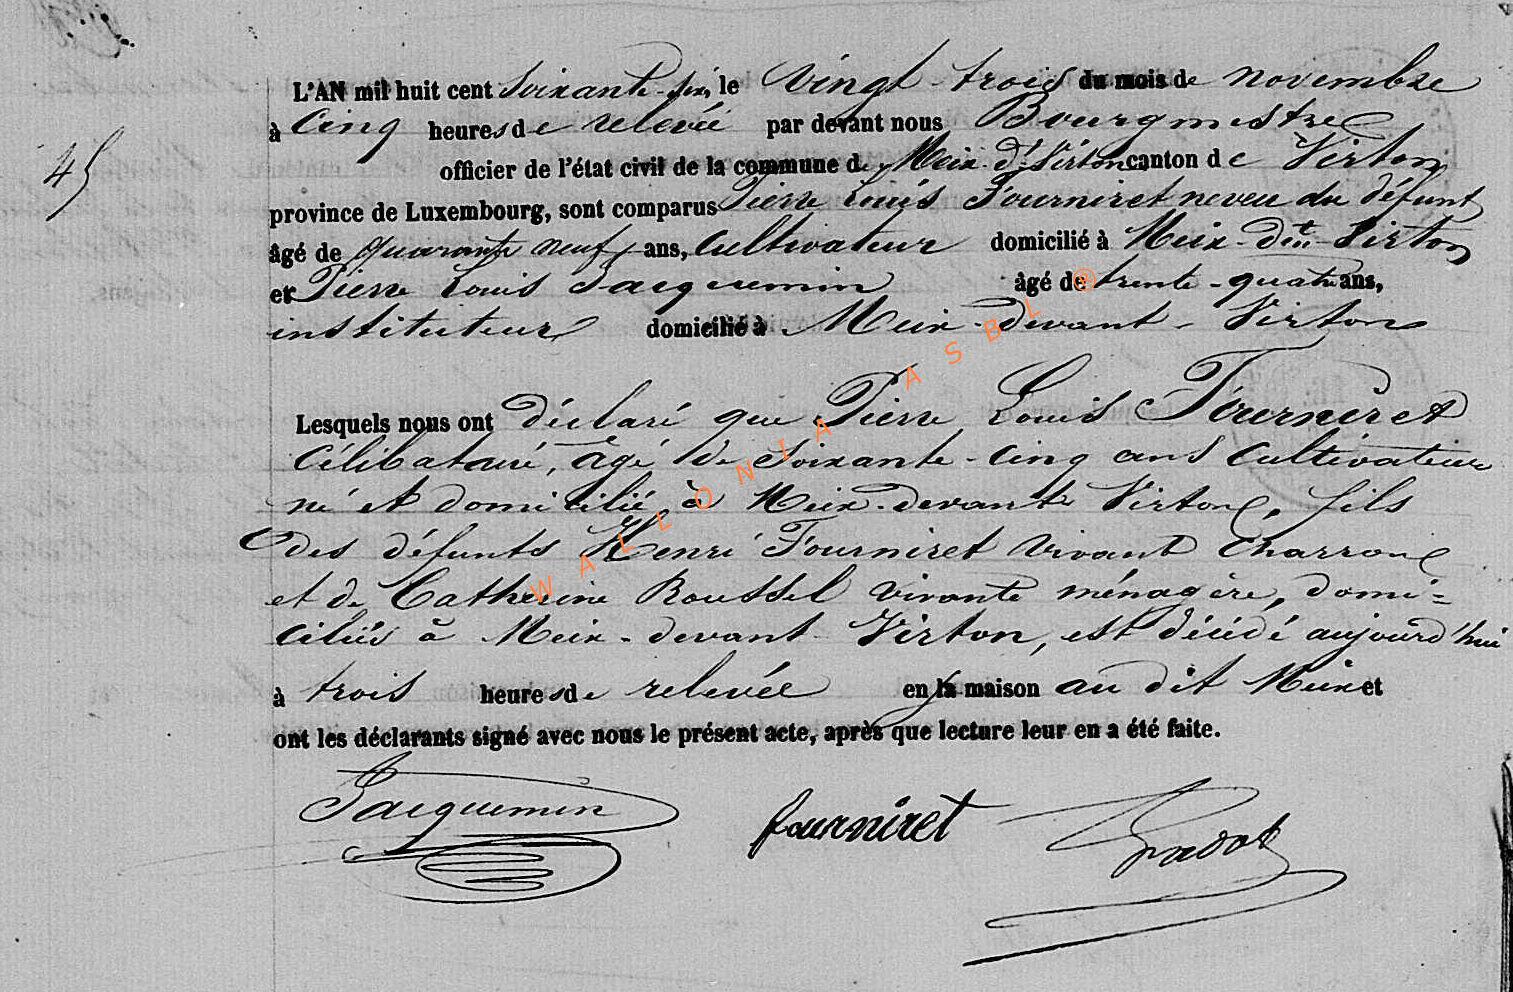 L'AN mil huit cent soixante-six, le vingt-trois du mois de novembre
à cinq heures de relevée par devant nous Bourgmestre
45
officier de l'état civil de la commune de Meix-dt-Virton canton de Virton
province de Luxembourg, sont comparus Pierre Louis Fourniret neveu du défunt
âgé de quarante neuf ans, cultivateur domicilié à Meix-dvt-Virton
et Pierre Louis Jacquemin âgé de trente-quatre ans,
instituteur domicilié à Meix-devant-Virton
Lesquels nous ont déclaré que Pierre Louis Fourniret
célibataire, âgé de soixante-cinq ans cultivateur
né et domicilié à Meix-devant Virton, fils
des défunts Henri Fourniret vivant charron
et de Catherine Roussel vivante ménagère, domi=
ciliés à Meix-devant Virton, est décédé aujourd'hui
à trois heures de relevée en la maison au dit Meix et
ont les déclarants signé avec nous le présent acte, après que lecture leur en a été faite.
Jacquemin fourniret
WALLONIA ASBL ®